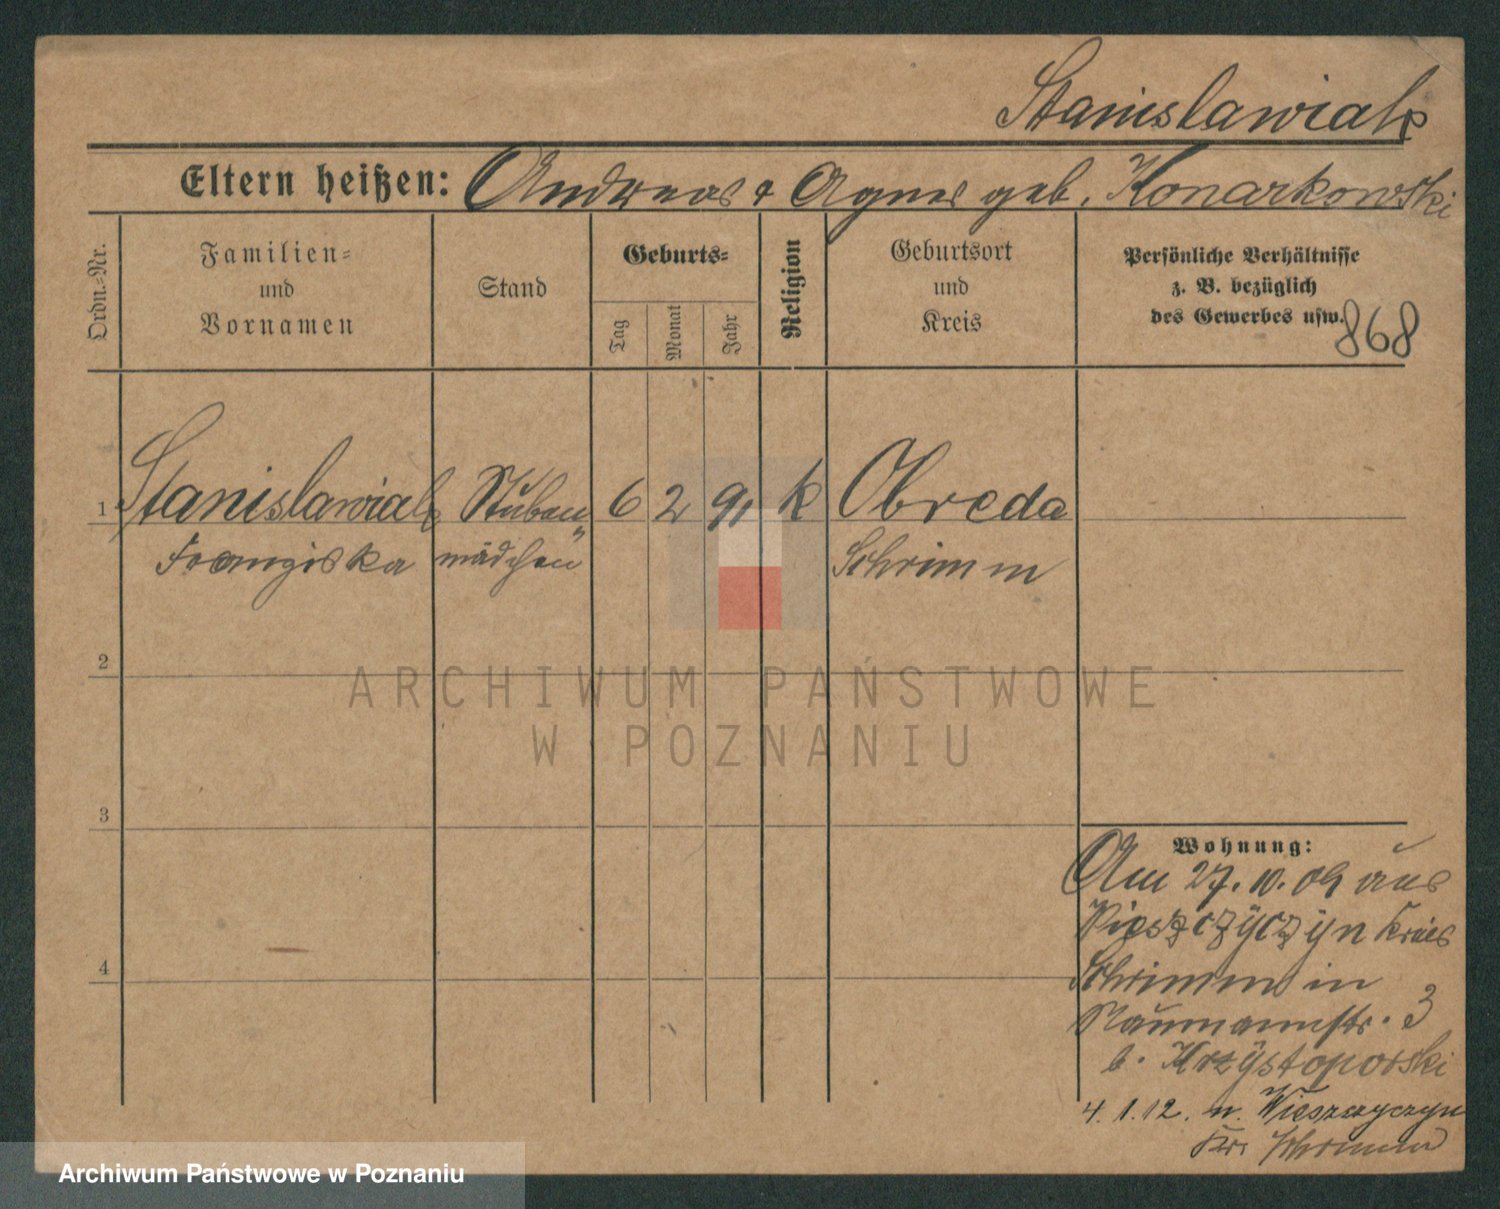 Stanislawiak
Eltern heißen: Andreas & Agnes geb. Konarkowski
Ordn.-Nr.
Familien-
und
Vornamen
Stand
Geburts-
Tag
Monat
Jahr
Religion
Geburtsort
und
Kreis
Persönliche Verhältnisse
z. B. bezüglich
des Gewerbes usw.
868
1 Stanislawiak Stuben 6 2 91 k Obreda
Franziska mädchen Schrimm
2
3
4
Wohnung:
Am 27. 10. 09 aus
Wieszczyczyn Kreis
Schrimm in
Naumannstr. 3
b. Krzystoporski
4. 1. 12. n. Wieszczyczyn
Kr. Schrimm
ARCHIWUM PAŃSTWOWE
W POZNANIU
Archiwum Państwowe w Poznaniu